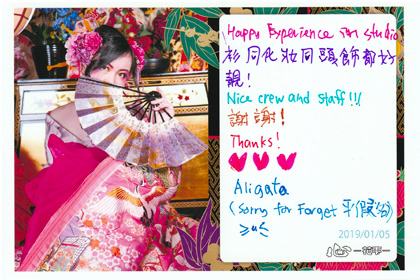 Happy Experience in studio
衫同化妝同頭飾都好
靚!
Nice crew and staff!!!
謝謝!
Thanks!
Aligata
(Sorry for Forget 平假名)
2019/01/05